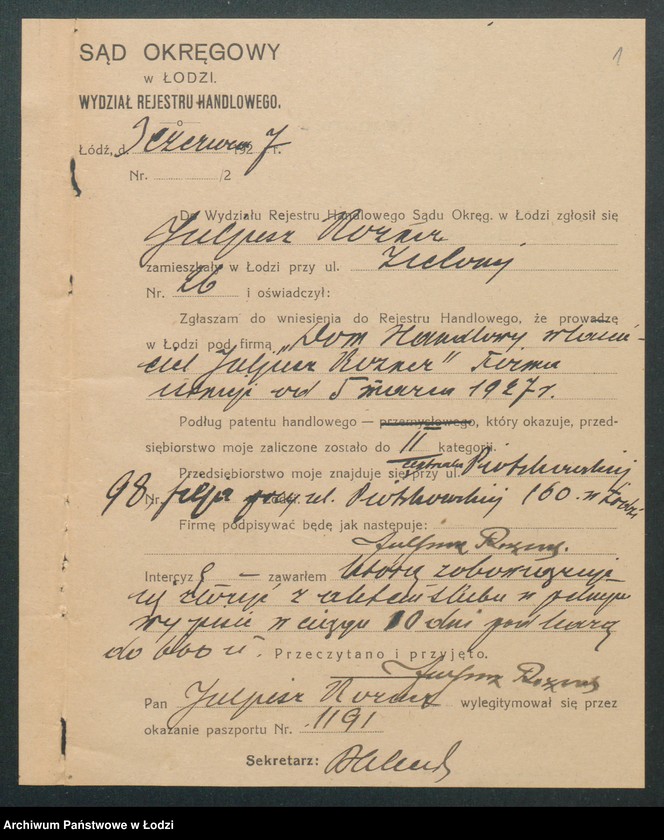 1
SĄD OKRĘGOWY
w ŁODZI.
WYDZIAŁ REJESTRU HANDLOWEGO.
Łódź, d. 3 czerwca 1927 r.
Nr. /2
Do Wydziału Rejestru Handlowego Sądu Okręg. w Łodzi zgłosił się
Juljusz Rozner
zamieszkały w Łodzi przy ul. Zielonej
Nr. 26 i oświadczył:
Zgłaszam do wniesienia do Rejestru Handlowego, że prowadzę
w Łodzi pod firmą „Dom Handlowy właści-
ciel Juljusz Rozner" Firma
istnieje od 5 marca 1927 r.
Podług patentu handlowego — przemysłowego, który okazuje, przed-
siębiorstwo moje zaliczone zostało do II kategorji.
Przedsiębiorstwo moje znajduje się przy ul. centrala Piotrkowskiej
Nr. 98 filja przy ul. Piotrkowskiej 160 w Łodzi
Firmę podpisywać będę jak następuje:
Juljusz Rozner.
Intercyzę — zawarłem którą zobowiązuję
się złożyć z aktem ślubu w pełnym
wypisie w ciągu 10 dni pod karą
do 600 zł. Przeczytano i przyjęto.
Juljusz Rozner
Pan Juljusz Rozner wylegitymował się przez
okazanie paszportu Nr. 1191
Sekretarz:
Archiwum Państwowe w Łodzi